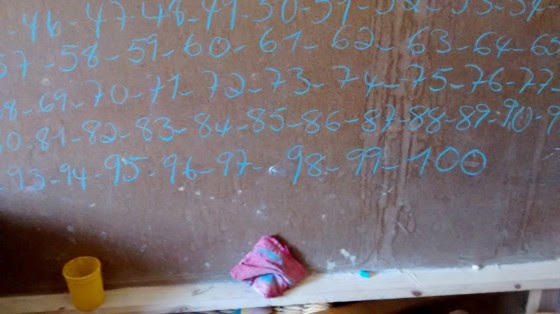 46-47-48-49-50-51-52-53-54
57-58-59-60-61-62-63-64-65
8-69-70-71-72-73-74-75-76-77
80-81-82-83-84-85-86-87-88-89-90-9
-93-94-95-96-97-98-99-100